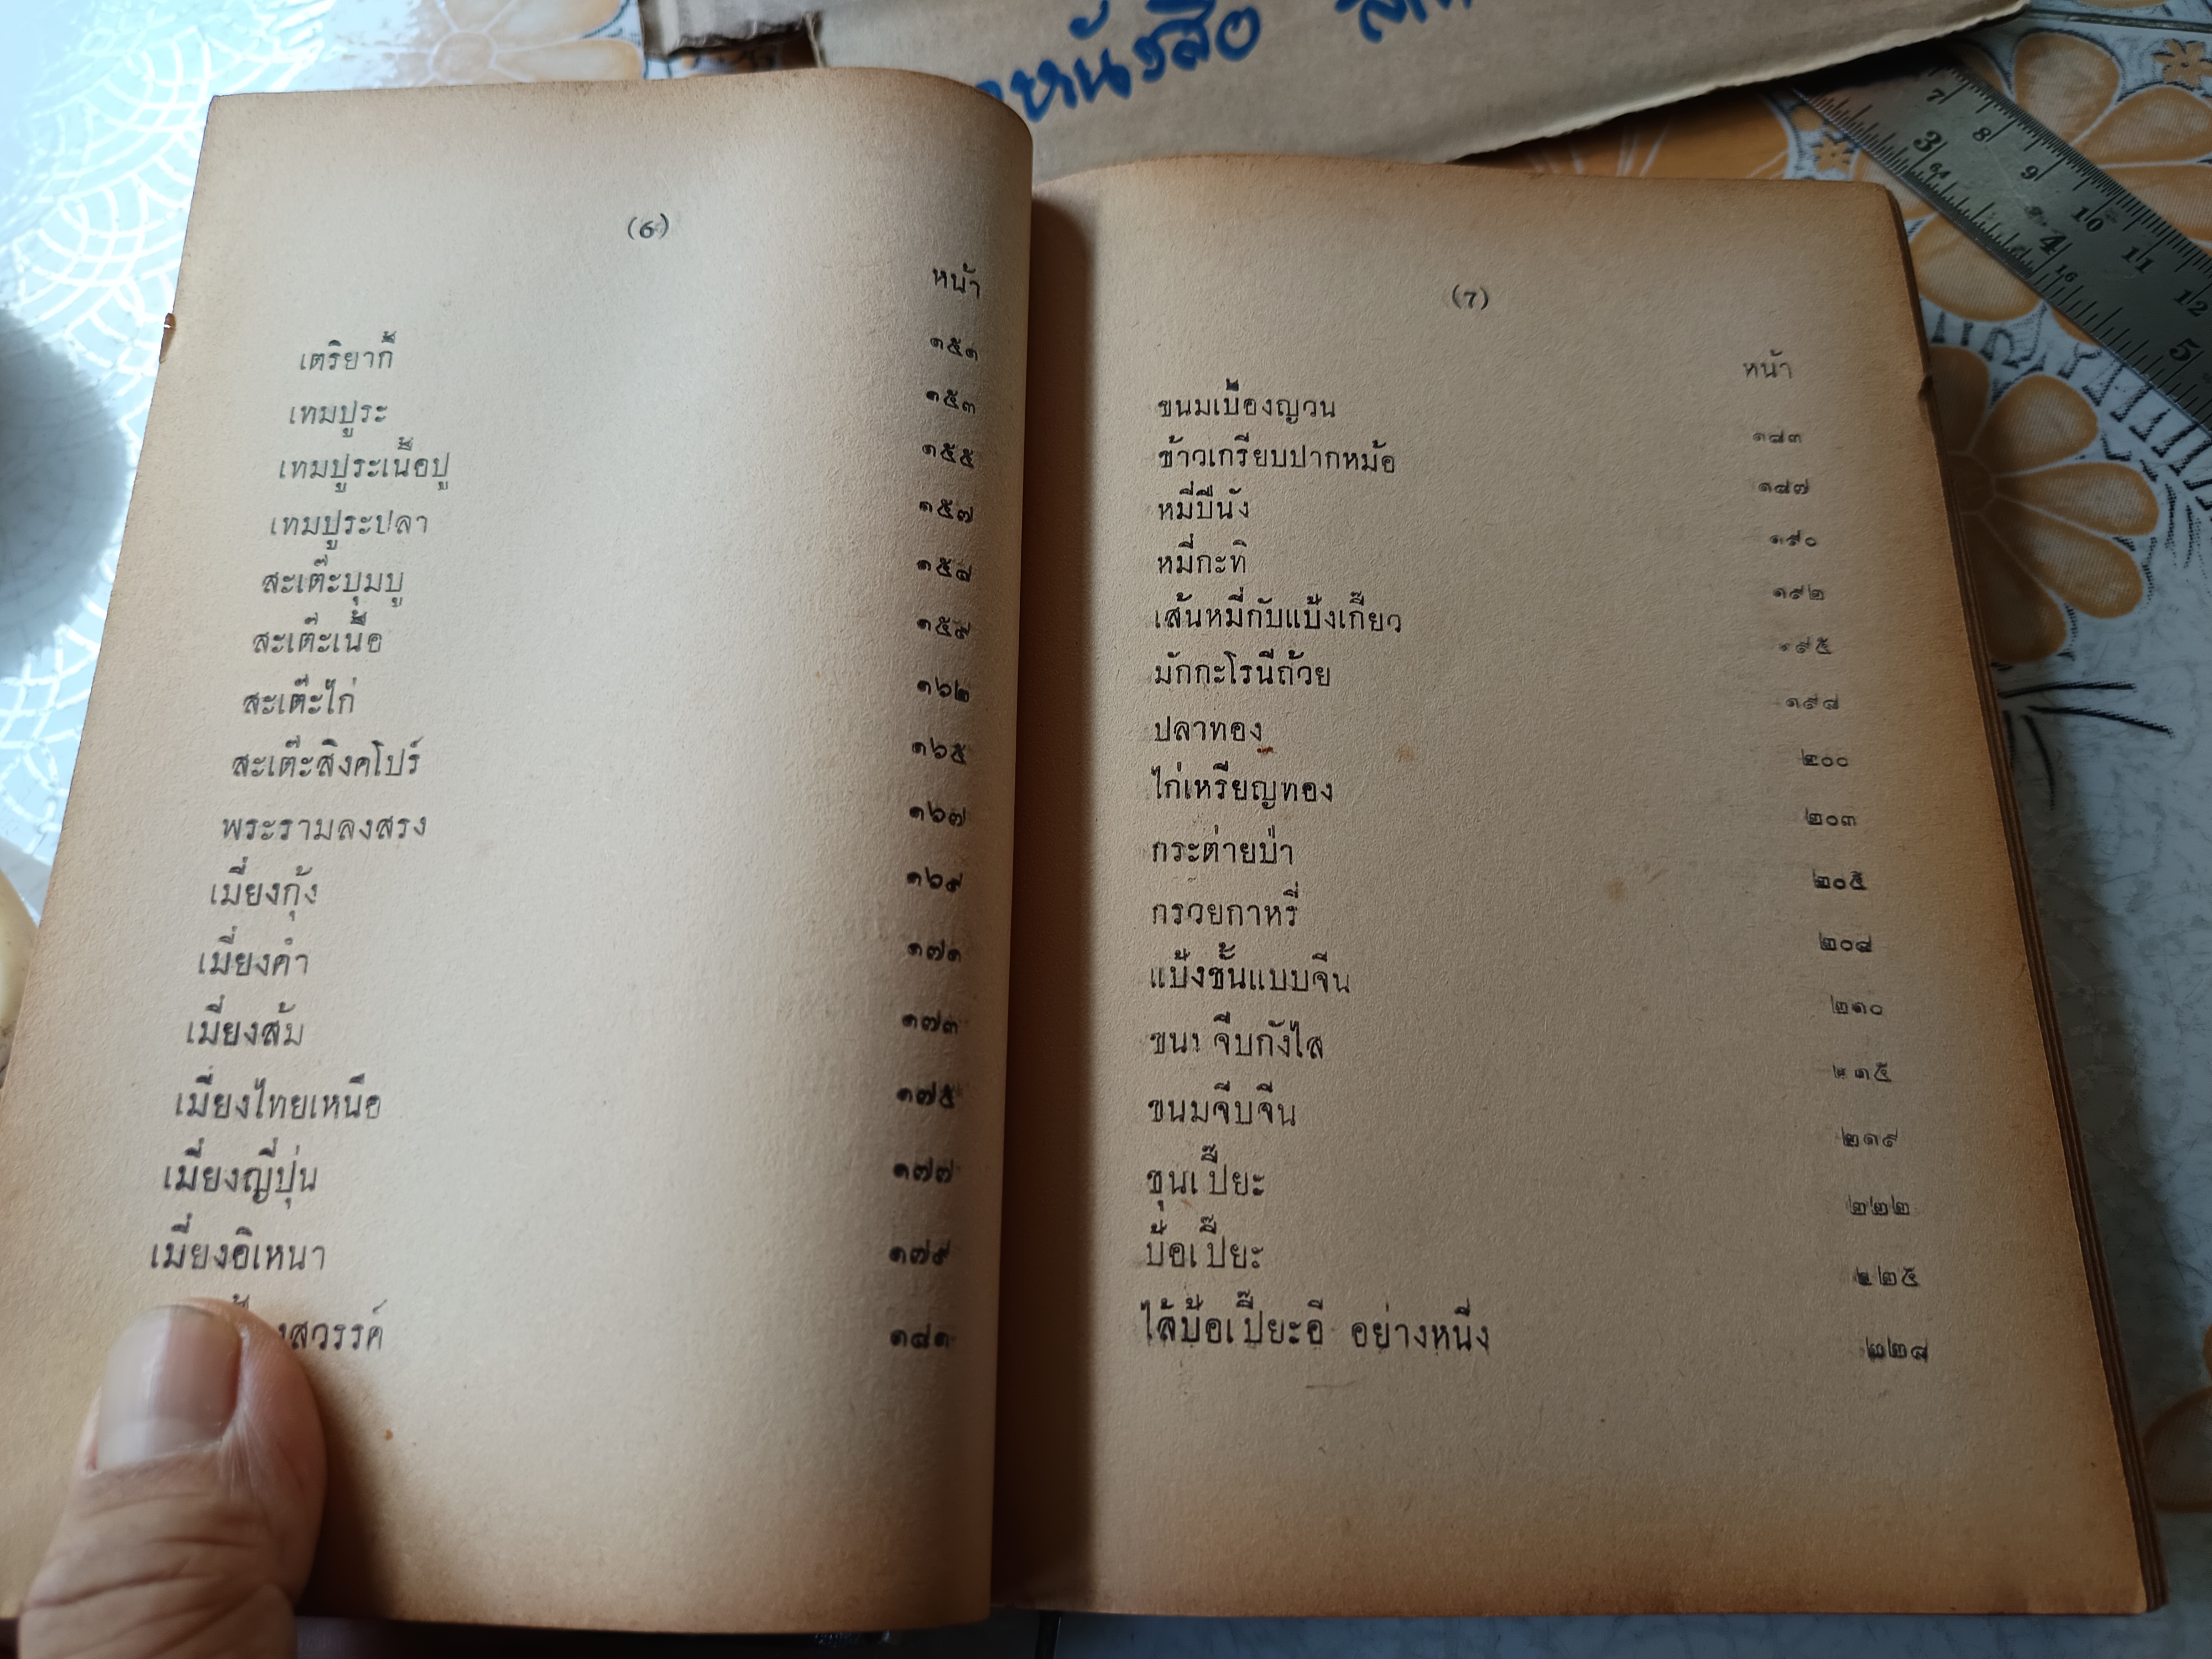 หนังสือ
(6)
หน้า
เตริยากี้ ๑๕๑
เทมปูระ ๑๕๓
เทมปูระเนื้อปู ๑๕๕
เทมปูระปลา ๑๕๗
สะเต๊ะบุมบู ๑๕๘
สะเต๊ะเนื้อ ๑๕๙
สะเต๊ะไก่ ๑๖๒
สะเต๊ะสิงคโปร์ ๑๖๕
พระรามลงสรง ๑๖๗
เมี่ยงกุ้ง ๑๖๙
เมี่ยงคำ ๑๗๑
เมี่ยงส้ม ๑๗๓
เมี่ยงไทยเหนือ ๑๗๕
เมี่ยงญี่ปุ่น ๑๗๗
เมี่ยงอิเหนา ๑๗๙
งสวรรค์ ๑๘๑
(7)
หน้า
ขนมเบื้องญวน ๑๘๓
ข้าวเกรียบปากหม้อ ๑๘๗
หมี่ปีนัง ๑๙๐
หมี่กะทิ ๑๙๒
เส้นหมี่กับแป้งเกี๊ยว ๑๙๕
มักกะโรนีถ้วย ๑๙๘
ปลาทอง ๒๐๐
ไก่เหรียญทอง ๒๐๓
กระต่ายป่า ๒๐๕
กรวยกาหรี่ ๒๐๘
แป้งชั้นแบบจีน ๒๑๐
ขนม จีบกังไส ๒๑๕
ขนมจีบจีน ๒๑๙
ชุนเปี๊ยะ ๒๒๒
ป้อเปี๊ยะ ๒๒๕
ไส้ป้อเปี๊ยะอี อย่างหนึ่ง ๒๒๘
3 4 5
7 8 9 10 11 12
64
16